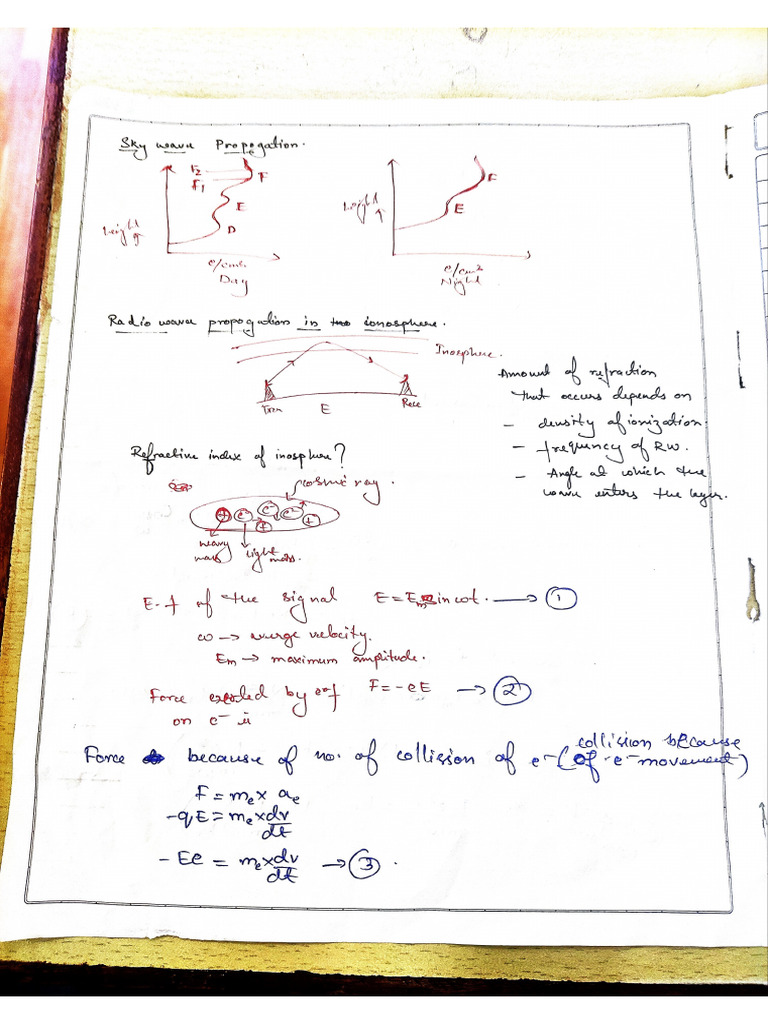 Sky wave Propogation.
F2
F1
F
E
D
height
e/cm2
Day
height
F
E
e/cm2
Night
Radio wave propogation in two ionosphere.
Inosphere.
Tran
E
Rece
Amount of refraction
that occurs depends on
- density of ionization.
- frequency of RW.
- Angle at which the
wave enters the layer.
Refractive index of inosphere?
cosmic ray.
+ e- e- e- + +
heavy mass
light mass.
E.f of the signal E = Em sin ωt. → ①
ω → surge velocity.
Em → maximum amplitude.
Force exerted by e.f F = -eE → ②
on e- is
Force because of no. of collission of e- (collision because
of e- movement)
F = me × ae
-qE = me × dv/dt
-Ee = me × dv/dt → ③.